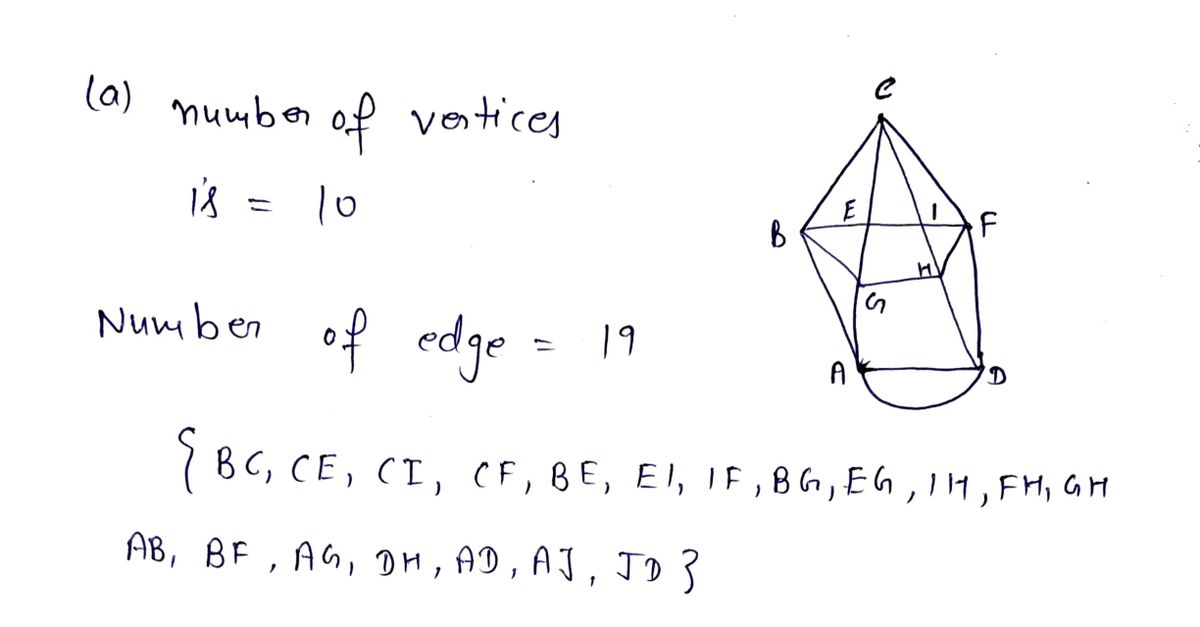 (a) number of vertices
is = 10
Number of edge = 19
{ BC, CE, CI, CF, BE, EI, IF, BG, EG, IH, FH, GH
AB, BF, AG, DH, AD, AJ, JD }
C
E I
B F
H
G
A D